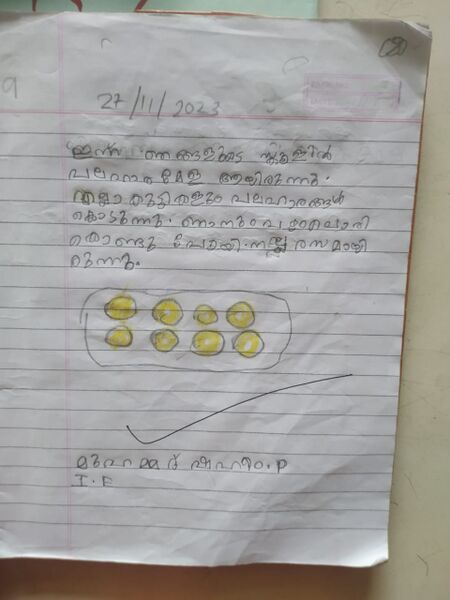 27/11/2023
ഇന്ന് ഞങ്ങളുടെ സ്കൂളിൽ
പലഹാര മേള ആയിരുന്നു.
എല്ലാ കുട്ടികളും പലഹാരങ്ങൾ
കൊടുന്നു. ഞാനും പഴംപൊരി
കൊണ്ടു പോയി. നല്ല രസമായി
രുന്നു.
മുഹമ്മദ് ഷഹീം.P
I.F